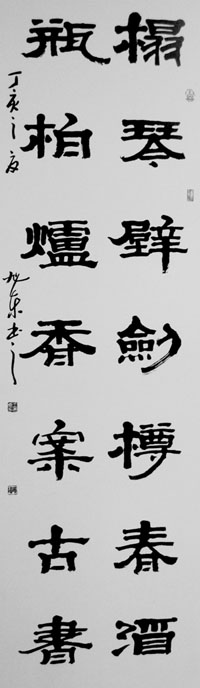 榻琴壁劍樽春酒
瓶柏爐香案古書
丁亥之夏